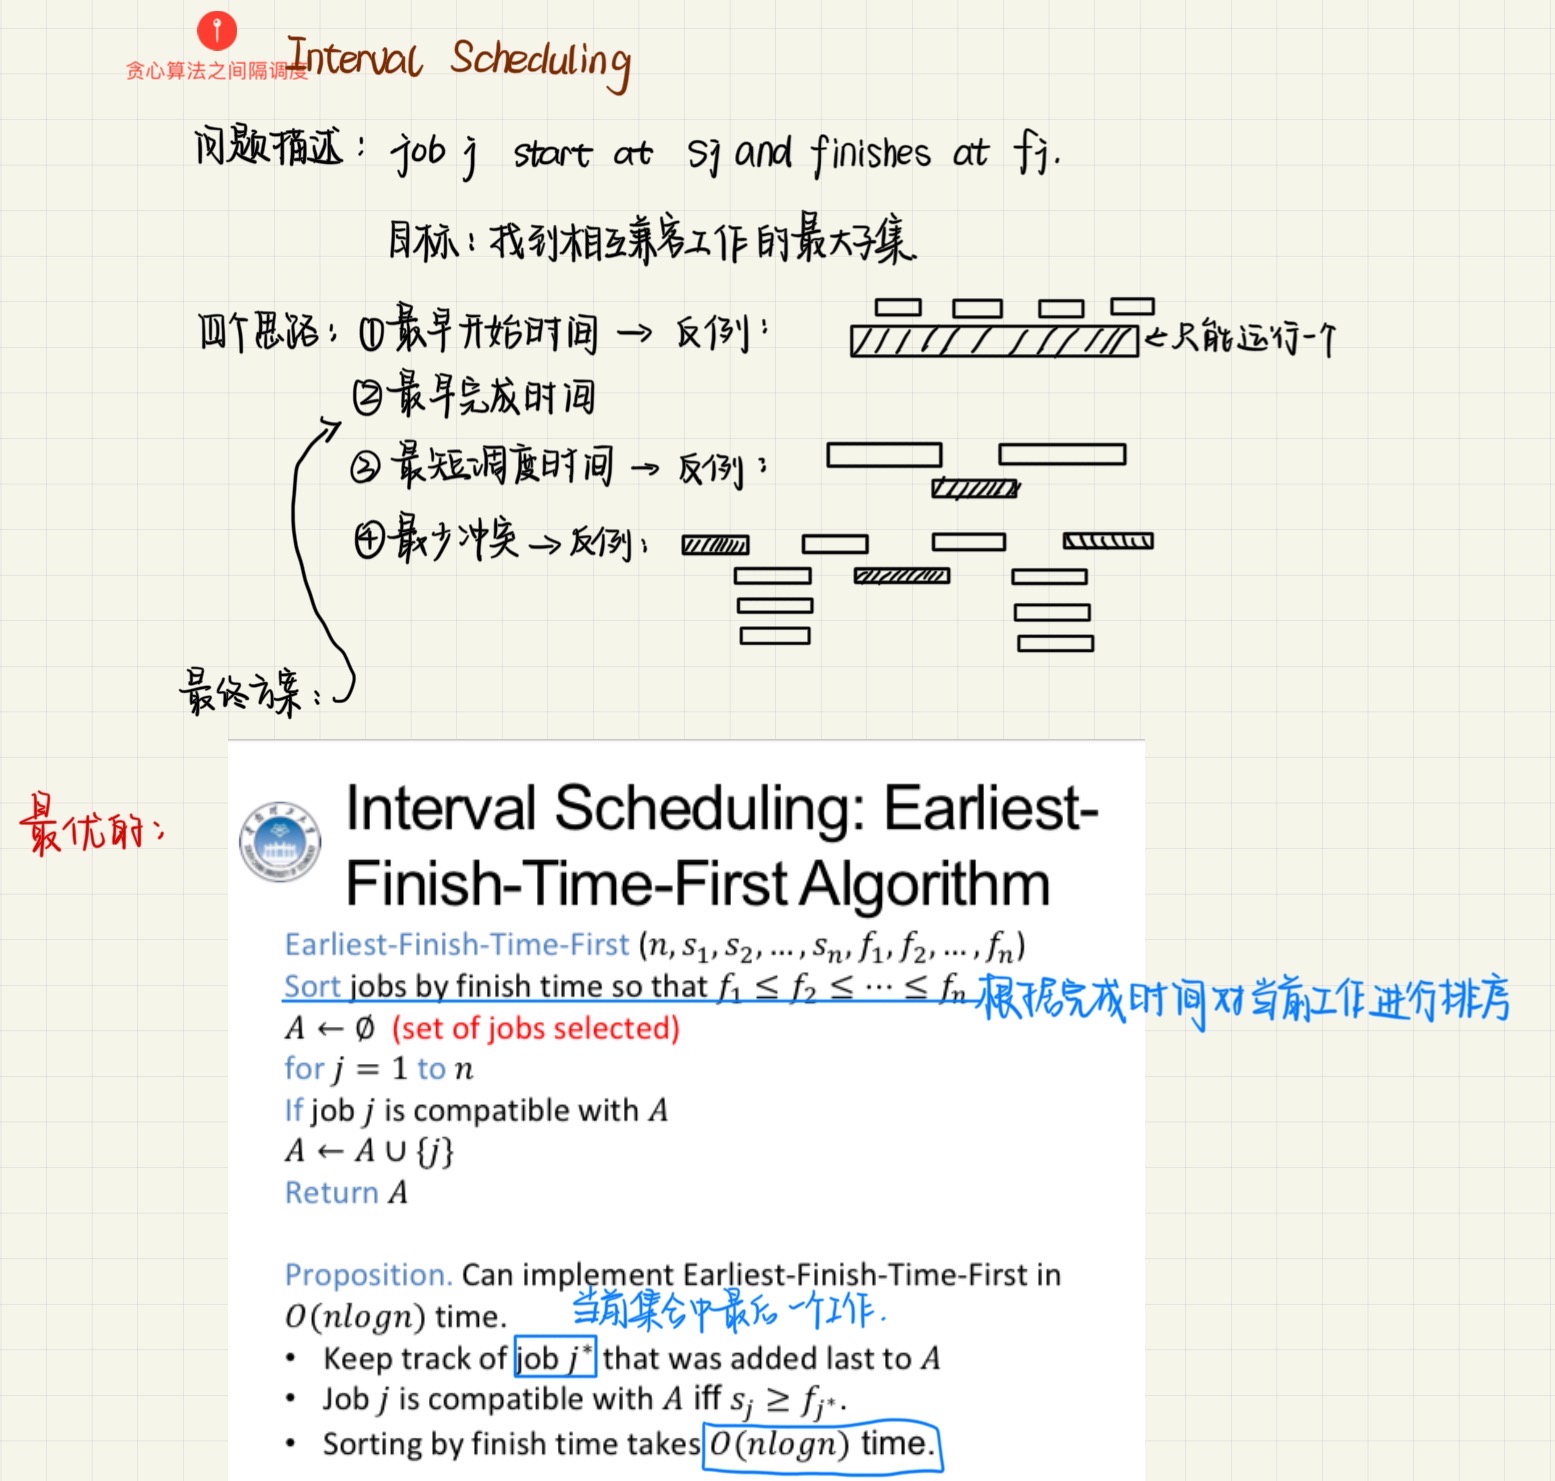 Interval Scheduling
贪心算法之间隔调度
问题描述: job j start at sj and finishes at fj.
目标: 找到相互兼容工作的最大子集.
四个思路: ①最早开始时间 → 反例: ←只能运行一个
②最早完成时间
③最短调度时间 → 反例:
④最少冲突 → 反例:
最终方案:
最优的:
Interval Scheduling: Earliest-
Finish-Time-First Algorithm
Earliest-Finish-Time-First (n, s₁, s₂, ..., sₙ, f₁, f₂, ..., fₙ)
Sort jobs by finish time so that f₁ ≤ f₂ ≤ ⋯ ≤ fₙ 根据完成时间对当前工作进行排序
A ← ∅ (set of jobs selected)
for j = 1 to n
If job j is compatible with A
A ← A ∪ {j}
Return A
Proposition. Can implement Earliest-Finish-Time-First in
O(nlogn) time. 当前集合中最后一个工作.
• Keep track of job j* that was added last to A
• Job j is compatible with A iff sⱼ ≥ fⱼ*.
• Sorting by finish time takes O(nlogn) time.